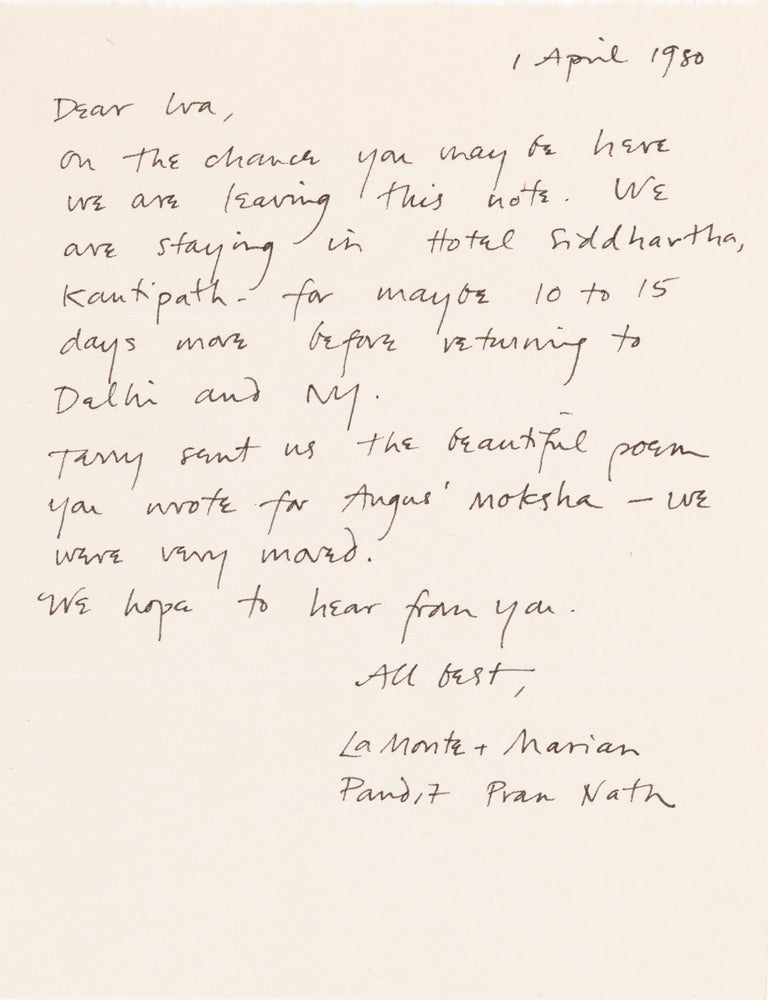 1 April 1980
Dear Ira,
on the chance you may be here
we are leaving this note. We
are staying in Hotel Siddhartha,
Kantipath - for maybe 10 to 15
days more before returning to
Delhi and NY.
Tarry sent us the beautiful poem
you wrote for Angus' Moksha – we
were very moved.
We hope to hear from you.
All best,
La Monte + Marian
Pandit Pran Nath